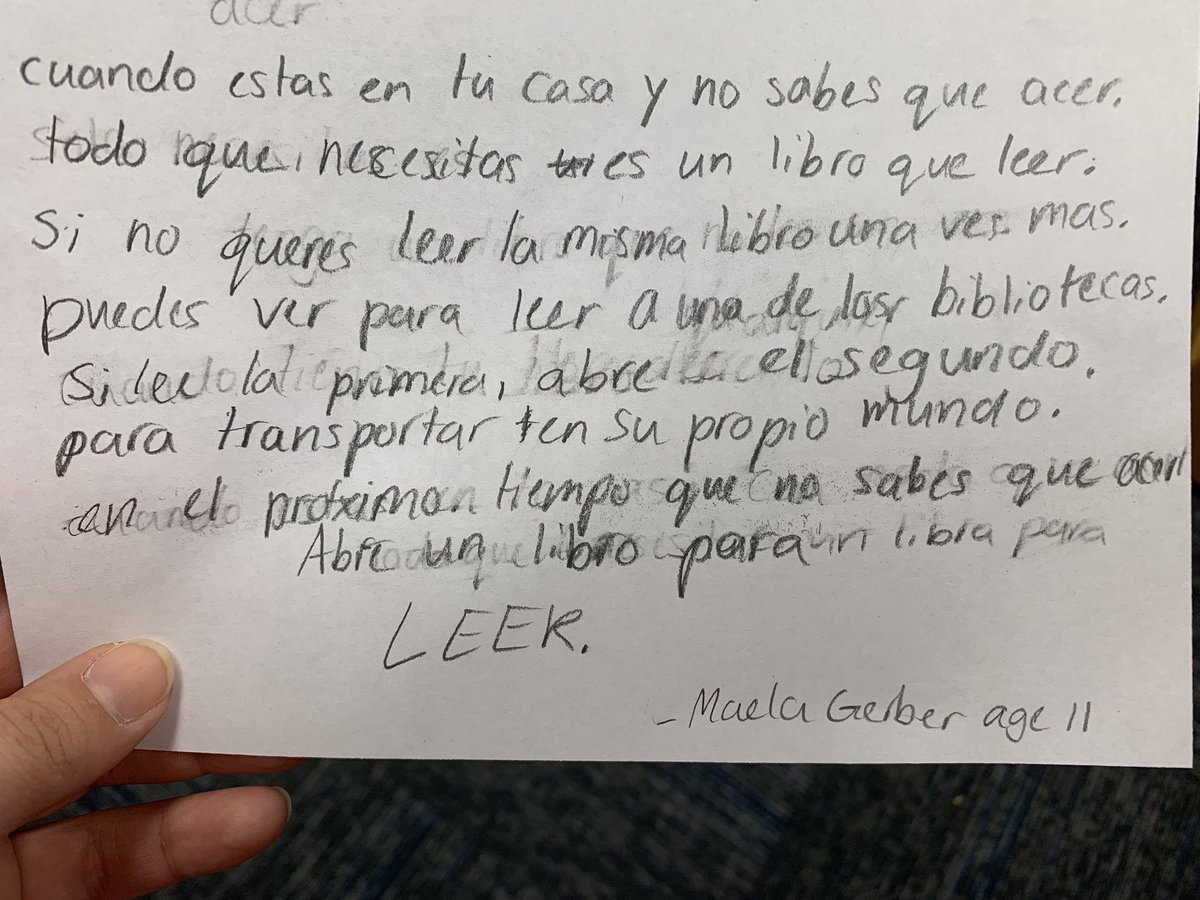 acer
cuando estas en tu casa y no sabes que acer.
todo que necesitas es un libro que leer.
Si no queres leer la misma libro una ves mas.
puedes ver para leer a una de las bibliotecas.
Si lee la primera, abre el segundo.
para transportar en su propio mundo.
en el proximo tiempo que no sabes que acer
Abre un libro para
LEER.
- Maela Gerber age 11